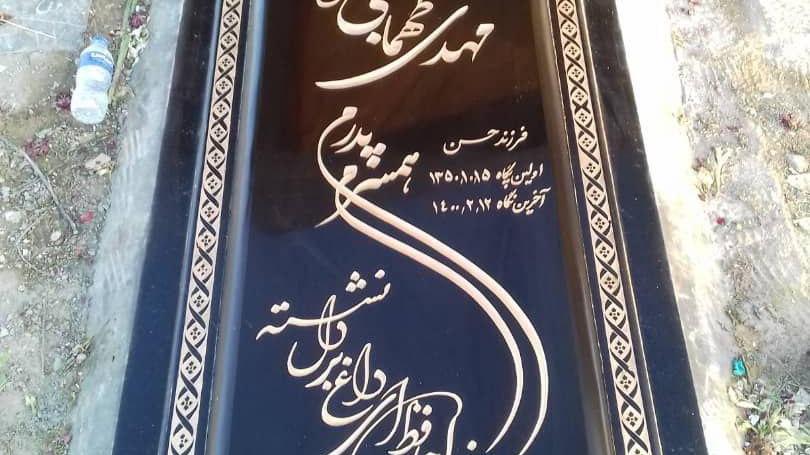 مهدی
همسرم پدرم
فرزند حسن
اولین پگاه ۱۳۵۰.۱.۱۵
آخرین نگاه ۱۴۰۰.۲.۱۲
ای داغ بر دل نشسته